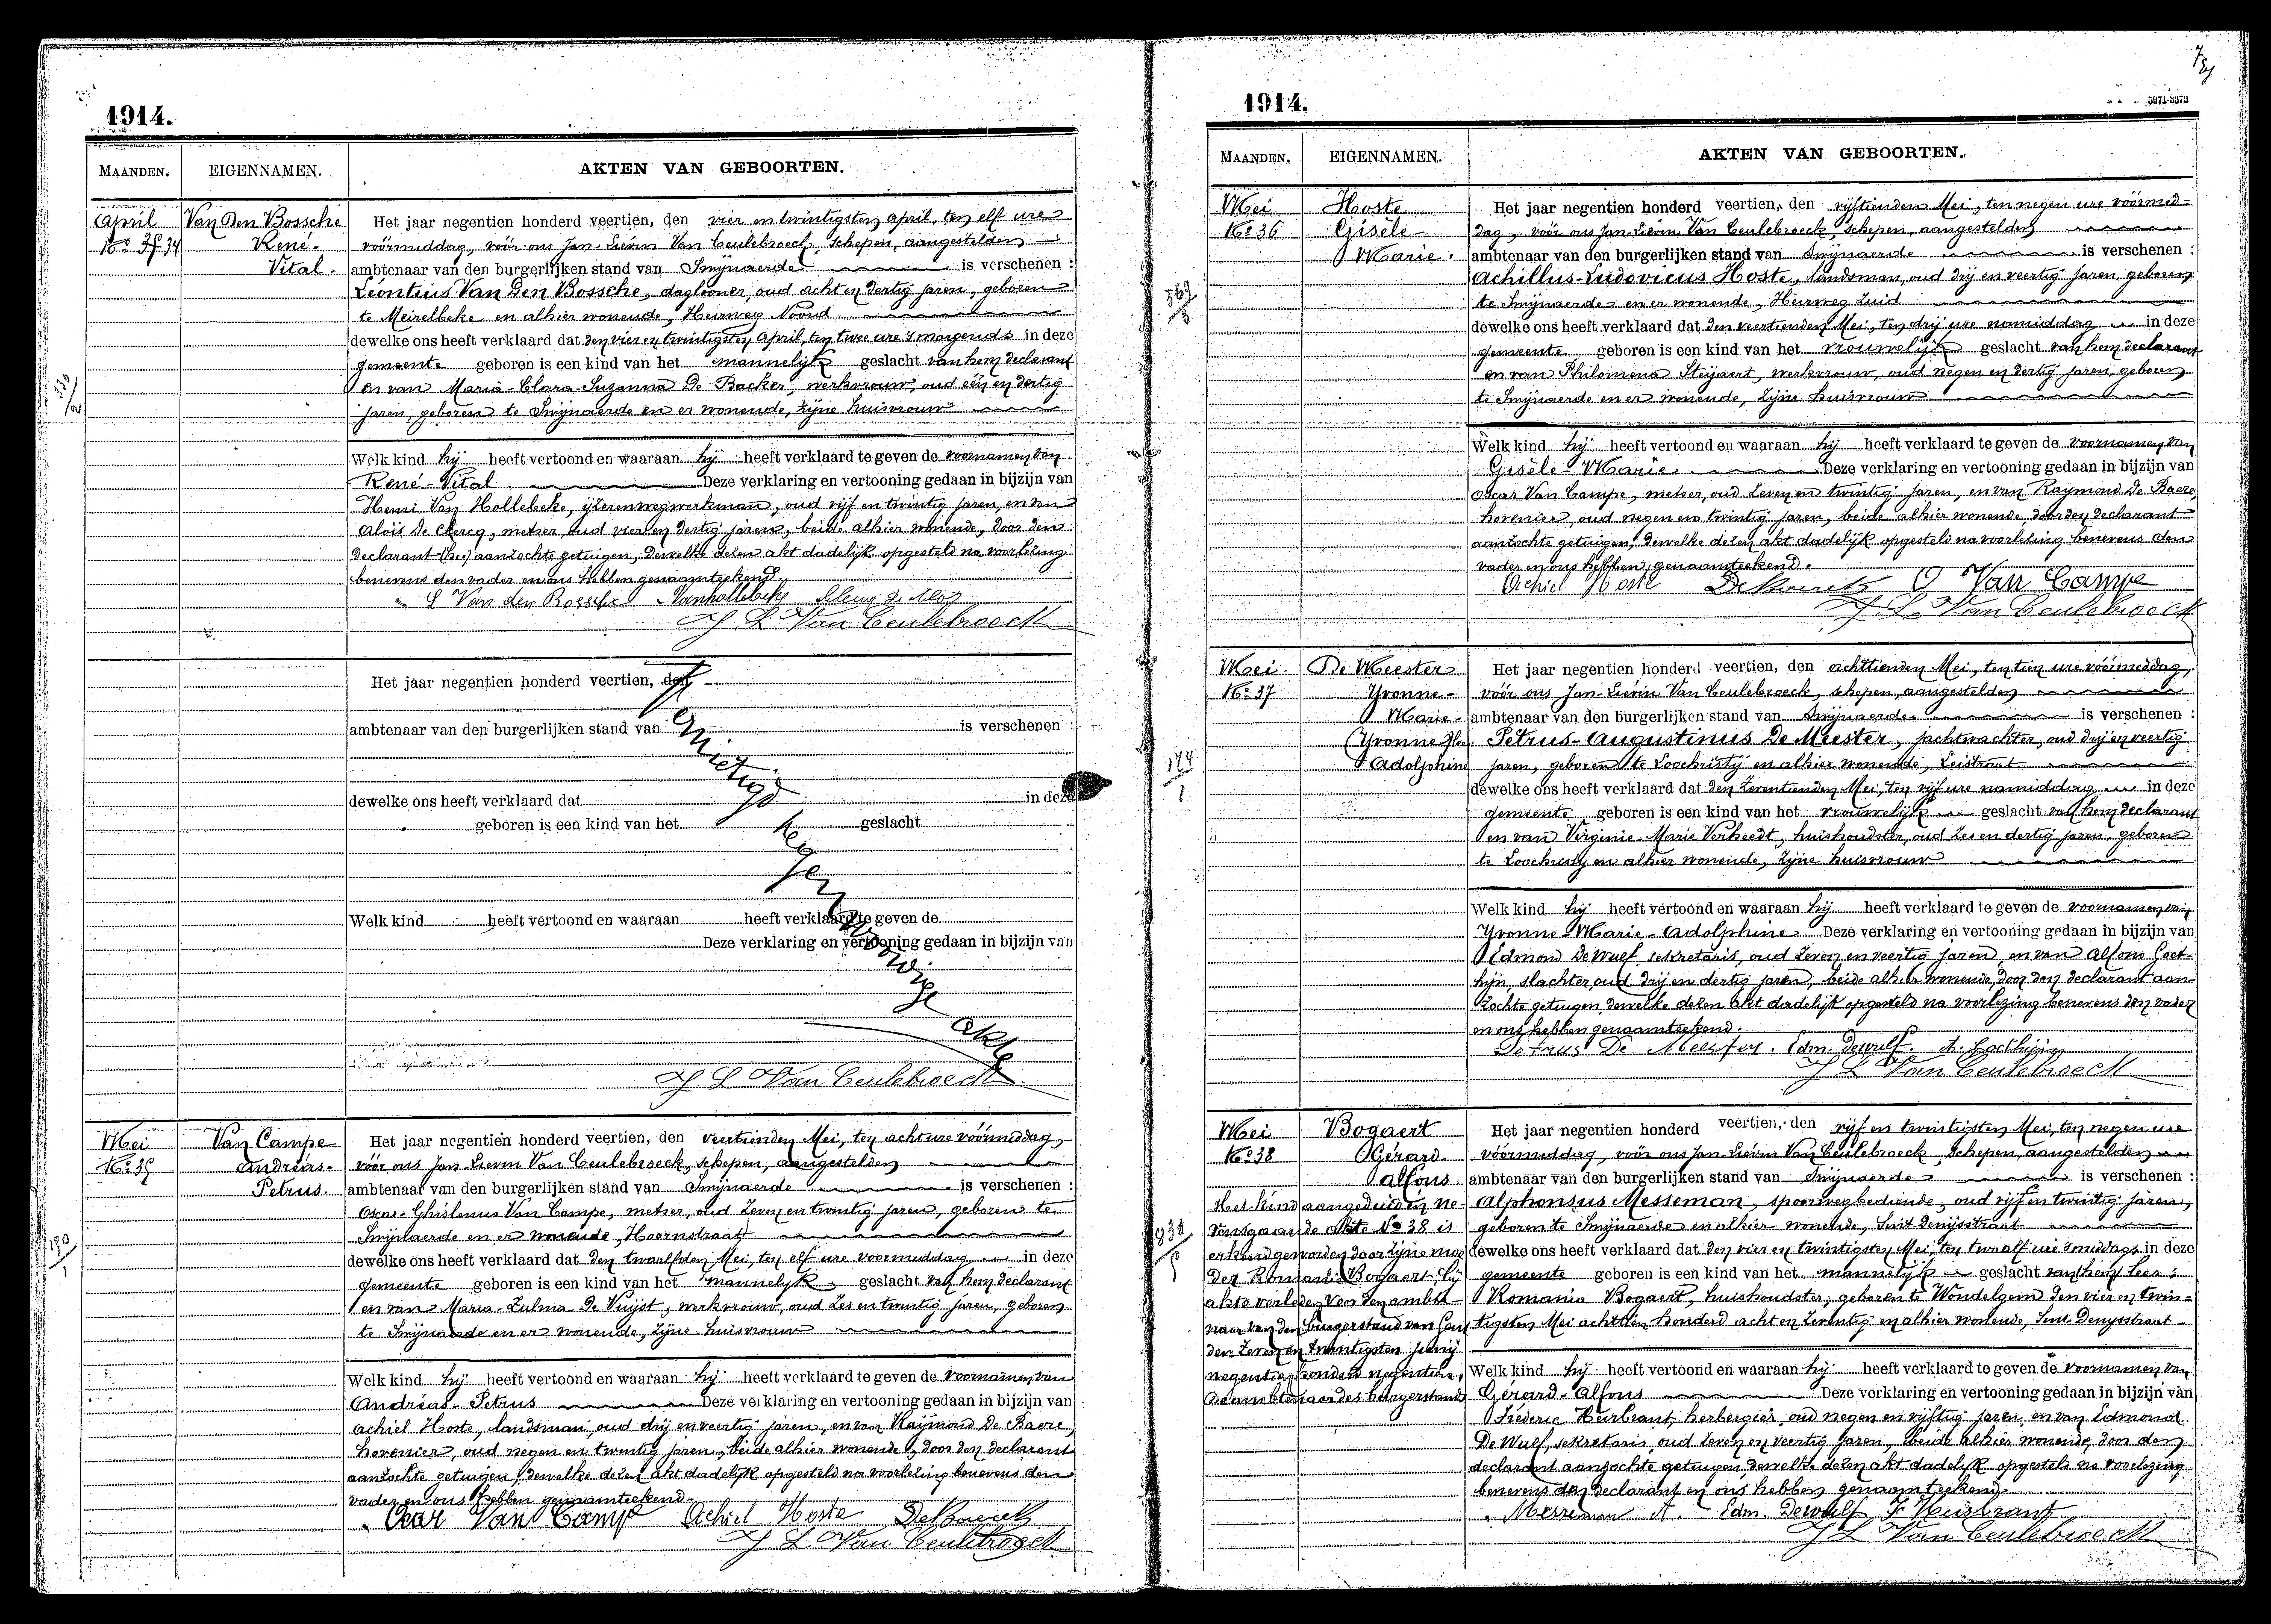 1914.
MAANDEN. EIGENNAMEN. AKTEN VAN GEBOORTEN.
April Van Den Bossche Het jaar negentien honderd veertien, den vier en twintigsten april, ten elf ure
René- voórmiddag, voór ons Jan-Lievin Van Ceulebroeck, schepen, aangestelden
Vital. ambtenaar van den burgerlijken stand van Smijnaerde is verschenen :
Léontius Van Den Bossche, daglooner, oud acht en dertig jaren, geboren
te Meirelbeke en alhier wonende, Heirweg Noord
dewelke ons heeft verklaard dat den vier en twintigsten april, ten twee ure 's morgends in deze
gemeente geboren is een kind van het mannelijk geslacht van hem declarant
en van Maria-Clara-Suzanna De Backer, werkvrouw, oud één en dertig
jaren, geboren te Smijnaerde en er wonende, zijne huisvrouw
Welk kind hij heeft vertoond en waaraan hij heeft verklaard te geven de voornamen van
René-Vital Deze verklaring en vertooning gedaan in bijzijn van
Henri Van Hollebeke, ijzerenwegwerkman, oud vijf en twintig jaren, en van
Alois De Clercq, metser, oud vier en dertig jaren, beide alhier wonende, door den
declarant aanzochte getuigen, dewelke dezen akt dadelijk opgesteld na voorlezing
benevens den vader en ons hebben genaamteekend.
L Van den Bossche Vanhollebeke
J L Van Ceulebroeck
Het jaar negentien honderd veertien, den
ambtenaar van den burgerlijken stand van is verschenen :
dewelke ons heeft verklaard dat in deze
geboren is een kind van het geslacht
Welk kind heeft vertoond en waaraan heeft verklaard te geven de
Deze verklaring en vertooning gedaan in bijzijn van
Vernietigd
tegenwoordige akte
J L Van Ceulebroeck
Mei Van Campe Het jaar negentien honderd veertien, den veertienden Mei, ten acht ure vóórmiddag,
No 35 Andréas- vóór ons Jan Lievin Van Ceulebroeck, schepen, aangestelden
Petrus. ambtenaar van den burgerlijken stand van Smijnaerde is verschenen :
Oscar-Ghislenus Van Campe, metser, oud zeven en twintig jaren, geboren te
Smijnaerde en er wonende, Hoornstraat
dewelke ons heeft verklaard dat den twaalfden Mei, ten elf ure voormiddag in deze
gemeente geboren is een kind van het mannelijk geslacht van hem declarant
en van Maria-Zulma De Vuijst, werkvrouw, oud zes en twintig jaren, geboren
te Smijnaerde en er wonende, zijne huisvrouw
Welk kind hij heeft vertoond en waaraan hij heeft verklaard te geven de voornamen van
Andréas-Petrus Deze verklaring en vertooning gedaan in bijzijn van
Achiel Hoste, landsman, oud drij en veertig jaren, en van Raijmond De Baere,
hovenier, oud negen en twintig jaren, beide alhier wonende, door den declarant
aanzochte getuigen, dewelke dezen akt dadelijk opgesteld na voorlezing benevens den
vader en ons hebben genaamteekend.
Oscar Van Campe Achiel Hoste
J L Van Ceulebroeck
1914.
MAANDEN. EIGENNAMEN. AKTEN VAN GEBOORTEN.
Mei Hoste Het jaar negentien honderd veertien, den vijftienden Mei, ten negen ure vóórmid-
No 36 Gisèle- dag, vóór ons Jan Lievin Van Ceulebroeck, schepen, aangestelden
Marie. ambtenaar van den burgerlijken stand van Smijnaerde is verschenen :
Achillus-Ludovicus Hoste, landsman, oud drij en veertig jaren, geboren
te Smijnaerde en er wonende, Heirweg Zuid
dewelke ons heeft verklaard dat den veertienden Mei, ten drij ure namiddag in deze
gemeente geboren is een kind van het vrouwelijk geslacht van hem declarant
en van Philomena Steijaert, werkvrouw, oud negen en dertig jaren, geboren
te Smijnaerde en er wonende, zijne huisvrouw
Welk kind hij heeft vertoond en waaraan hij heeft verklaard te geven de voornamen van
Gisèle-Marie Deze verklaring en vertooning gedaan in bijzijn van
Oscar Van Campe, metser, oud zeven en twintig jaren, en van Raymond De Baere
hovenier, oud negen en twintig jaren, beide alhier wonende, door den declarant
aanzochte getuigen, dewelke dezen akt dadelijk opgesteld na voorlezing benevens den
vader en ons hebben genaamteekend.
Achiel Hoste O Van Campe
J L Van Ceulebroeck
Mei De Meester Het jaar negentien honderd veertien, den achttienden Mei, ten tien ure vóórmiddag,
No 37 Yvonne- vóór ons Jan-Lievin Van Ceulebroeck, schepen, aangestelden
Marie- ambtenaar van den burgerlijken stand van Smijnaerde is verschenen :
Petrus-Augustinus De Meester, jachtwachter, oud drij en veertig
Adolphine jaren, geboren te Loochristij en alhier wonende, Leistraat
dewelke ons heeft verklaard dat den zeventienden Mei, ten vijf ure namiddag in deze
gemeente geboren is een kind van het vrouwelijk geslacht van hem declarant
en van Virginie-Marie Verheedt, huishoudster, oud zes en dertig jaren, geboren
te Loochristy en alhier wonende, zijne huisvrouw
Welk kind hij heeft vertoond en waaraan hij heeft verklaard te geven de voornamen van
Yvonne-Marie-Adolphine Deze verklaring en vertooning gedaan in bijzijn van
Edmond De Wulf, sekretaris, oud zeven en veertig jaren, en van Alfons Goet-
hijn, slachter, oud drij en dertig jaren, beide alhier wonende, door den declarant aan-
zochte getuigen, dewelke dezen akt dadelijk opgesteld na voorlezing benevens den vader
en ons hebben genaamteekend.
Petrus De Meester. Edm. Dewulf.
J L Van Ceulebroeck
Mei Bogaert Het jaar negentien honderd veertien, den vijf en twintigsten Mei, ten negen ure
No 38 Gérard- vóórmiddag, vóór ons Jan Lievin Van Ceulebroeck, schepen, aangestelden
Alfons ambtenaar van den burgerlijken stand van Smijnaerde is verschenen :
Het kind aangeduid in ne- Alphonsus Messeman, spoorwegbediende, oud vijf en twintig jaren,
vensgaande akte No 38 is geboren te Smijnaerde en alhier wonende, Sint Denijsstraat
erkend geworden door zijne moe dewelke ons heeft verklaard dat den vier en twintigsten Mei, ten twaalf ure 's middags in deze
der Romania Bogaert bij gemeente geboren is een kind van het mannelijk geslacht van
akte verleden voor den ambte- Romania Bogaert, huishoudster, geboren te Wondelgem den vier en twin-
naar van den burgerstand van Gent tigsten Mei achttien honderd acht en zeventig en alhier wonende, Sint Denysstraat
den zeven en twintigsten Junij
negentien honderd negentien. Welk kind hij heeft vertoond en waaraan hij heeft verklaard te geven de voornamen van
De ambtenaar des burgerstands Gérard-Alfons Deze verklaring en vertooning gedaan in bijzijn van
Fréderic Heirbrant, herbergier, oud negen en vijftig jaren, en van Edmond
De Wulf, sekretaris, oud zeven en veertig jaren, beide alhier wonende, door den
declarant aanzochte getuigen, dewelke dezen akt dadelijk opgesteld na voorlezing
benevens den declarant en ons hebben genaamteekend.
Messeman A. Edm. Dewulf F Heirbrant
J L Van Ceulebroeck